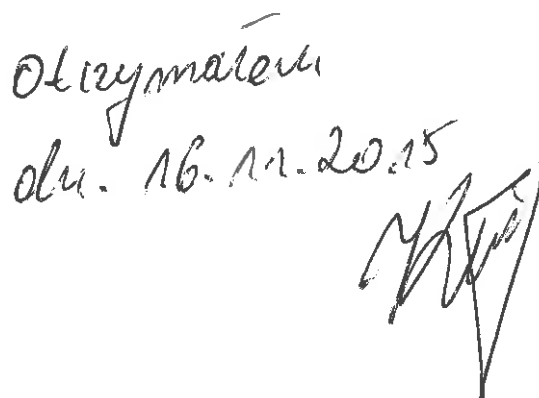 Otrzymałem
dn. 16.11.2015